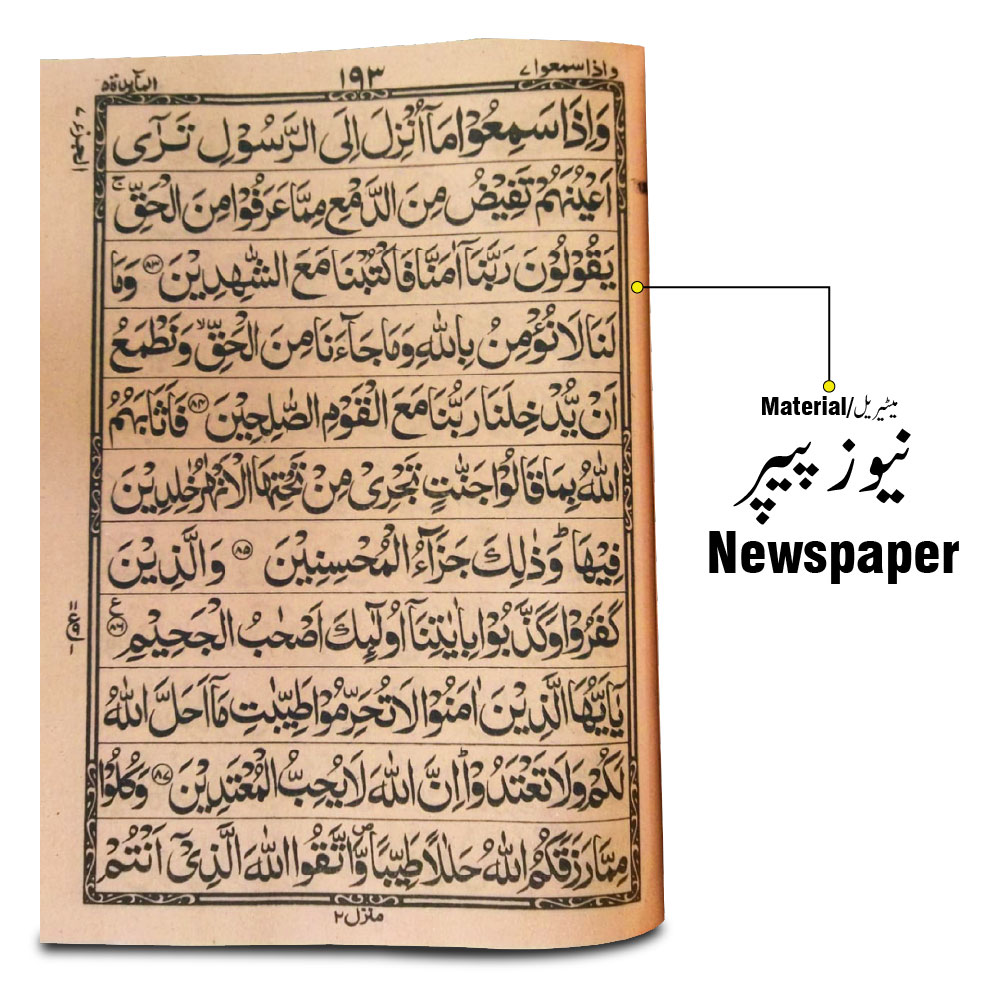 واذاسمعوا۷ ۱۹۳ المآئدة۵
وَاِذَا سَمِعُوْا مَاۤ اُنْزِلَ اِلَى الرَّسُوْلِ تَرٰۤى
اَعْيُنَهُمْ تَفِيْضُ مِنَ الدَّمْعِ مِمَّا عَرَفُوْا مِنَ الْحَقِّ ۚ
يَقُوْلُوْنَ رَبَّنَاۤ اٰمَنَّا فَاكْتُبْنَا مَعَ الشّٰهِدِيْنَ ۸۳ وَمَا
لَنَا لَا نُؤْمِنُ بِاللّٰهِ وَمَا جَآءَنَا مِنَ الْحَقِّ ۙ وَنَطْمَعُ
اَنْ يُّدْخِلَنَا رَبُّنَا مَعَ الْقَوْمِ الصّٰلِحِيْنَ ۸۴ فَاَثَابَهُمُ
اللّٰهُ بِمَا قَالُوْا جَنّٰتٍ تَجْرِىْ مِنْ تَحْتِهَا الْاَنْهٰرُ خٰلِدِيْنَ
فِيْهَا ؕ وَذٰلِكَ جَزَآءُ الْمُحْسِنِيْنَ ۸۵ وَالَّذِيْنَ
كَفَرُوْا وَكَذَّبُوْا بِاٰيٰتِنَاۤ اُولٰٓئِكَ اَصْحٰبُ الْجَحِيْمِ ۸۶ ع
يٰۤاَيُّهَا الَّذِيْنَ اٰمَنُوْا لَا تُحَرِّمُوْا طَيِّبٰتِ مَاۤ اَحَلَّ اللّٰهُ
لَكُمْ وَلَا تَعْتَدُوْا ؕ اِنَّ اللّٰهَ لَا يُحِبُّ الْمُعْتَدِيْنَ ۸۷ وَكُلُوْا
مِمَّا رَزَقَكُمُ اللّٰهُ حَلٰلًا طَيِّبًا ۖ وَّاتَّقُوا اللّٰهَ الَّذِىْۤ اَنْتُمْ
منزل ۲
Material/میٹیریل
نیوز پیپر
Newspaper